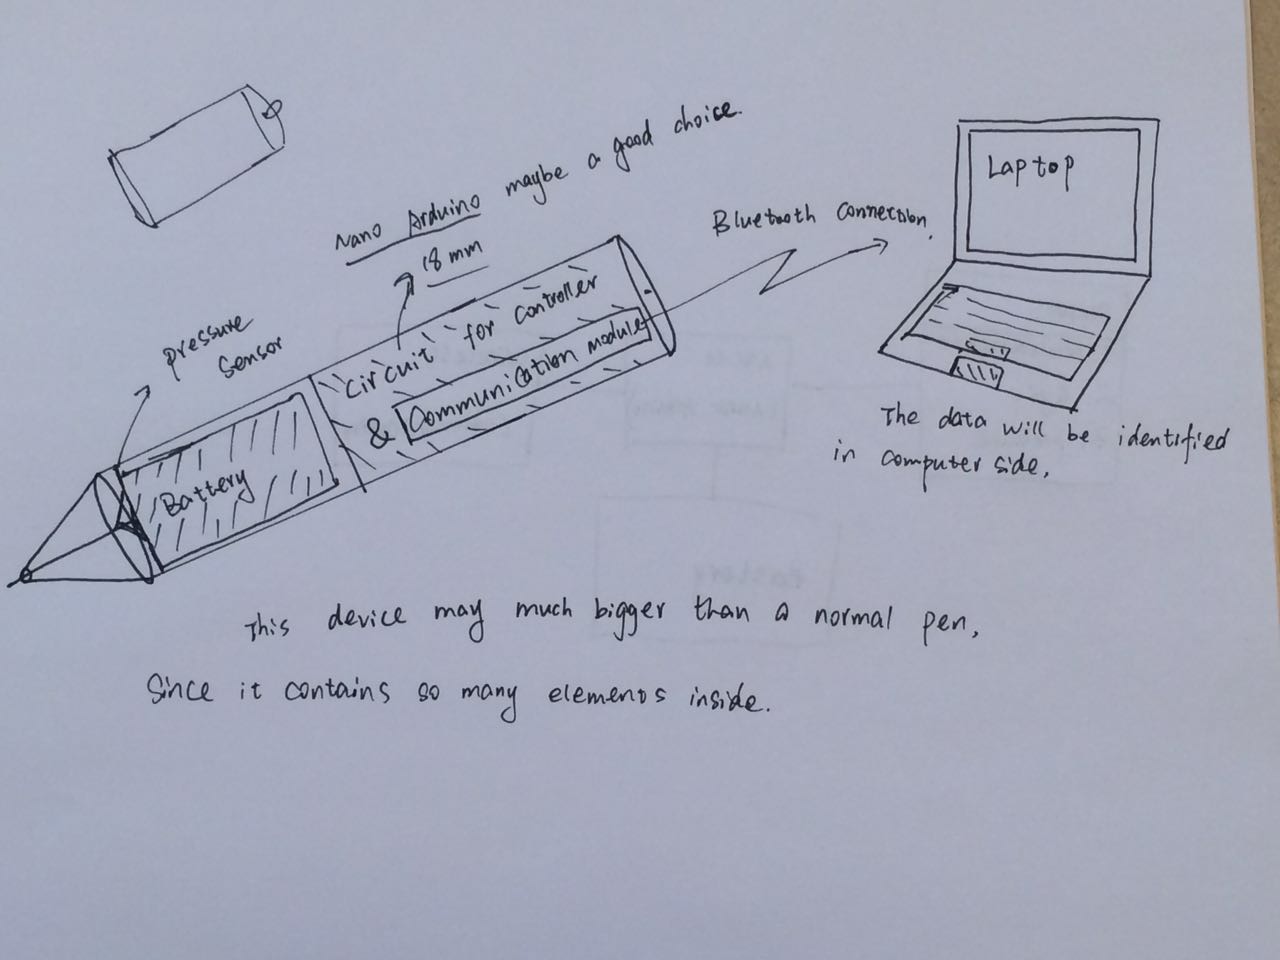 Nano Arduino maybe a good choice.
18 mm
Bluetooth Connection.
Laptop
pressure
sensor
Circuit for controller
& Communication module
Battery
The data will be identified
in computer side.
This device may much bigger than a normal pen,
Since it contains so many elements inside.